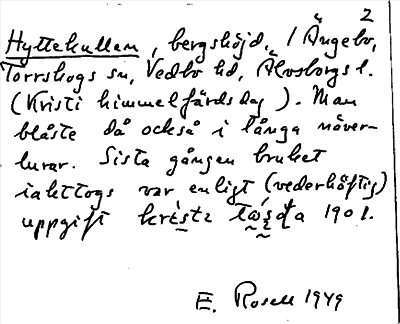 2
Hyttekullen, bergshöjd, i Ängebo,
Torrskogs sn, Vedbo hd, Älvsborgs l.
(Kristi himmelfärdsdag). Man
blåste då också i långa näver-
lurar. Sista gången bruket
iakttogs var enligt (vederhäftig)
uppgift 1901.
E. Rosell 1949